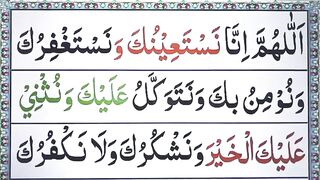 اَللّٰهُمَّ اِنَّا نَسْتَعِيْنُكَ وَنَسْتَغْفِرُكَ
وَنُؤْمِنُ بِكَ وَنَتَوَكَّلُ عَلَيْكَ وَنُثْنِيْ
عَلَيْكَ الْخَيْرَ وَنَشْكُرُكَ وَلَا نَكْفُرُكَ